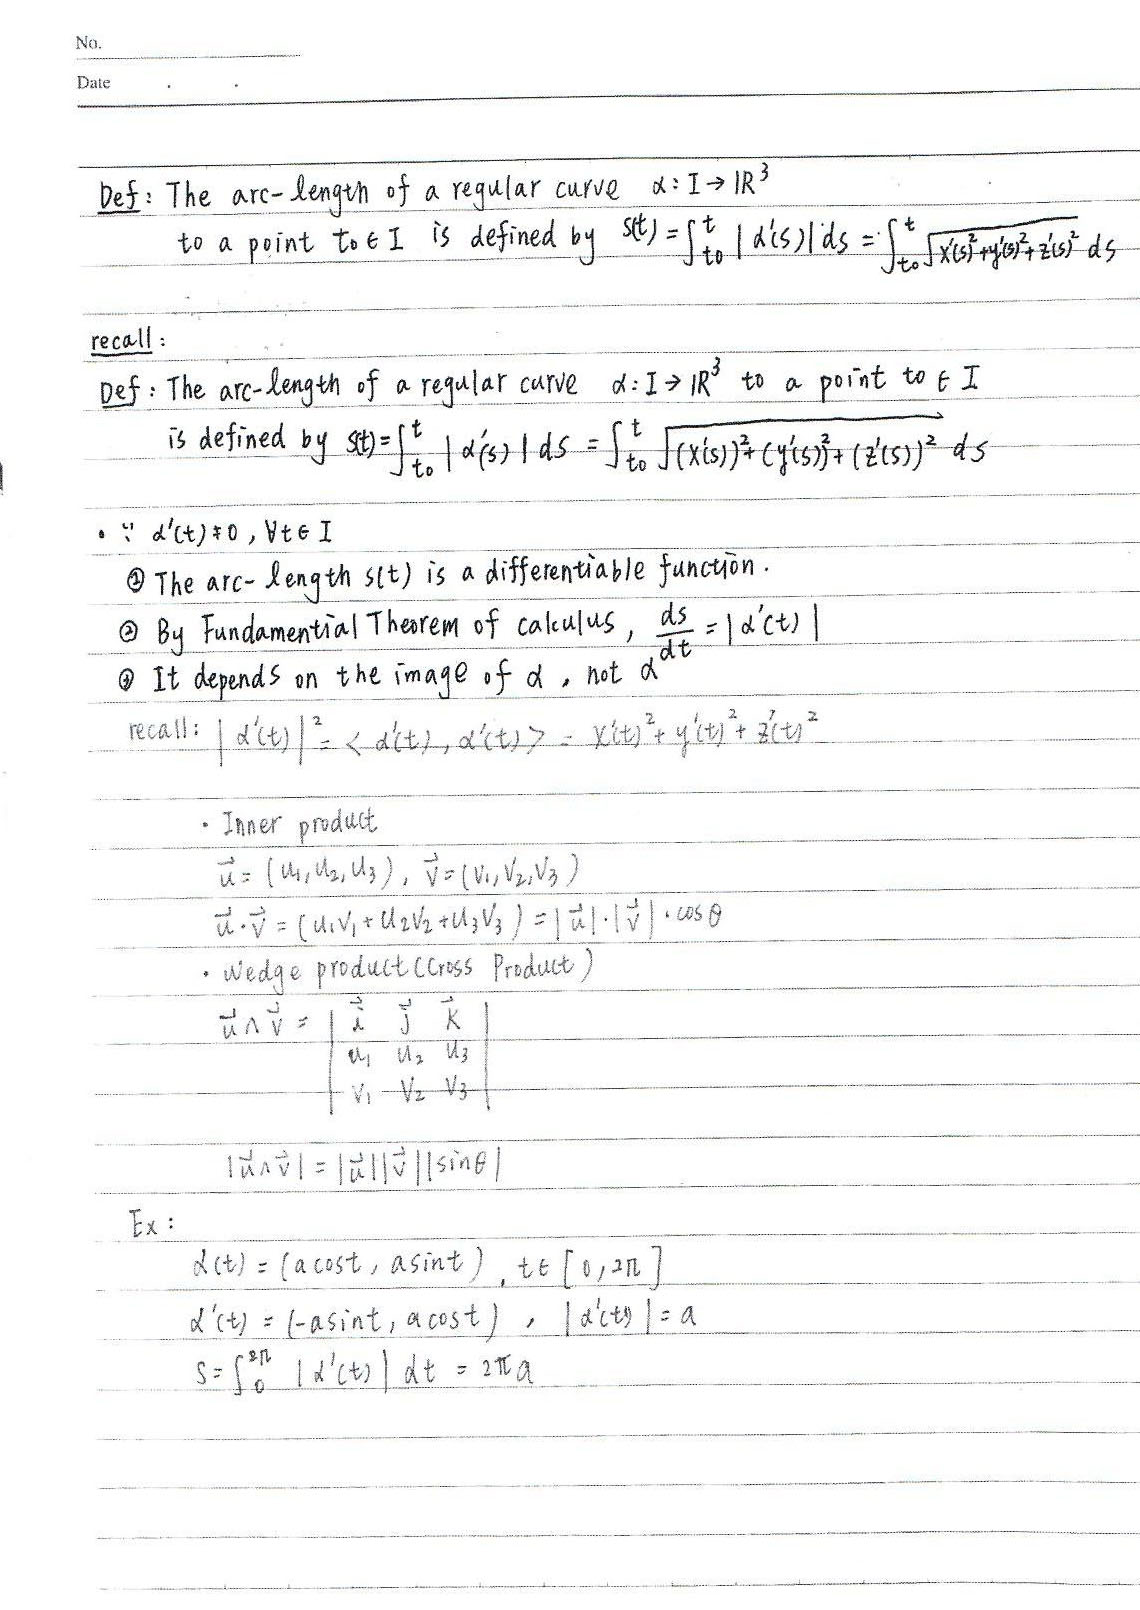 No.
Date . .
Def: The arc-length of a regular curve α: I → IR³
to a point to ∈ I is defined by s(t) = ∫_{to}^{t} |α'(s)| ds = ∫_{to}^{t} √(x'(s)²+y'(s)²+z'(s)²) ds
recall:
Def: The arc-length of a regular curve α: I → IR³ to a point to ∈ I
is defined by s(t) = ∫_{to}^{t} |α'(s)| ds = ∫_{to}^{t} √((x'(s))²+(y'(s))²+(z'(s))²) ds
• ∵ α'(t) ≠ 0, ∀t ∈ I
① The arc-length s(t) is a differentiable function.
② By Fundamential Theorem of calculus, ds/dt = |α'(t)|
③ It depends on the image of α, not α
recall: |α'(t)|² = <α'(t), α'(t)> = x'(t)² + y'(t)² + z'(t)²
• Inner product
u⃗ = (u₁, u₂, u₃), v⃗ = (v₁, v₂, v₃)
u⃗·v⃗ = (u₁v₁+u₂v₂+u₃v₃) = |u⃗|·|v⃗|·cosθ
• Wedge product (Cross Product)
u⃗ ∧ v⃗ = | i⃗ j⃗ k⃗ |
| u₁ u₂ u₃ |
| v₁ v₂ v₃ |
|u⃗ ∧ v⃗| = |u⃗||v⃗||sinθ|
Ex:
α(t) = (a cost, a sint), t ∈ [0, 2π]
α'(t) = (-a sint, a cost), |α'(t)| = a
S = ∫_{0}^{2π} |α'(t)| dt = 2πa